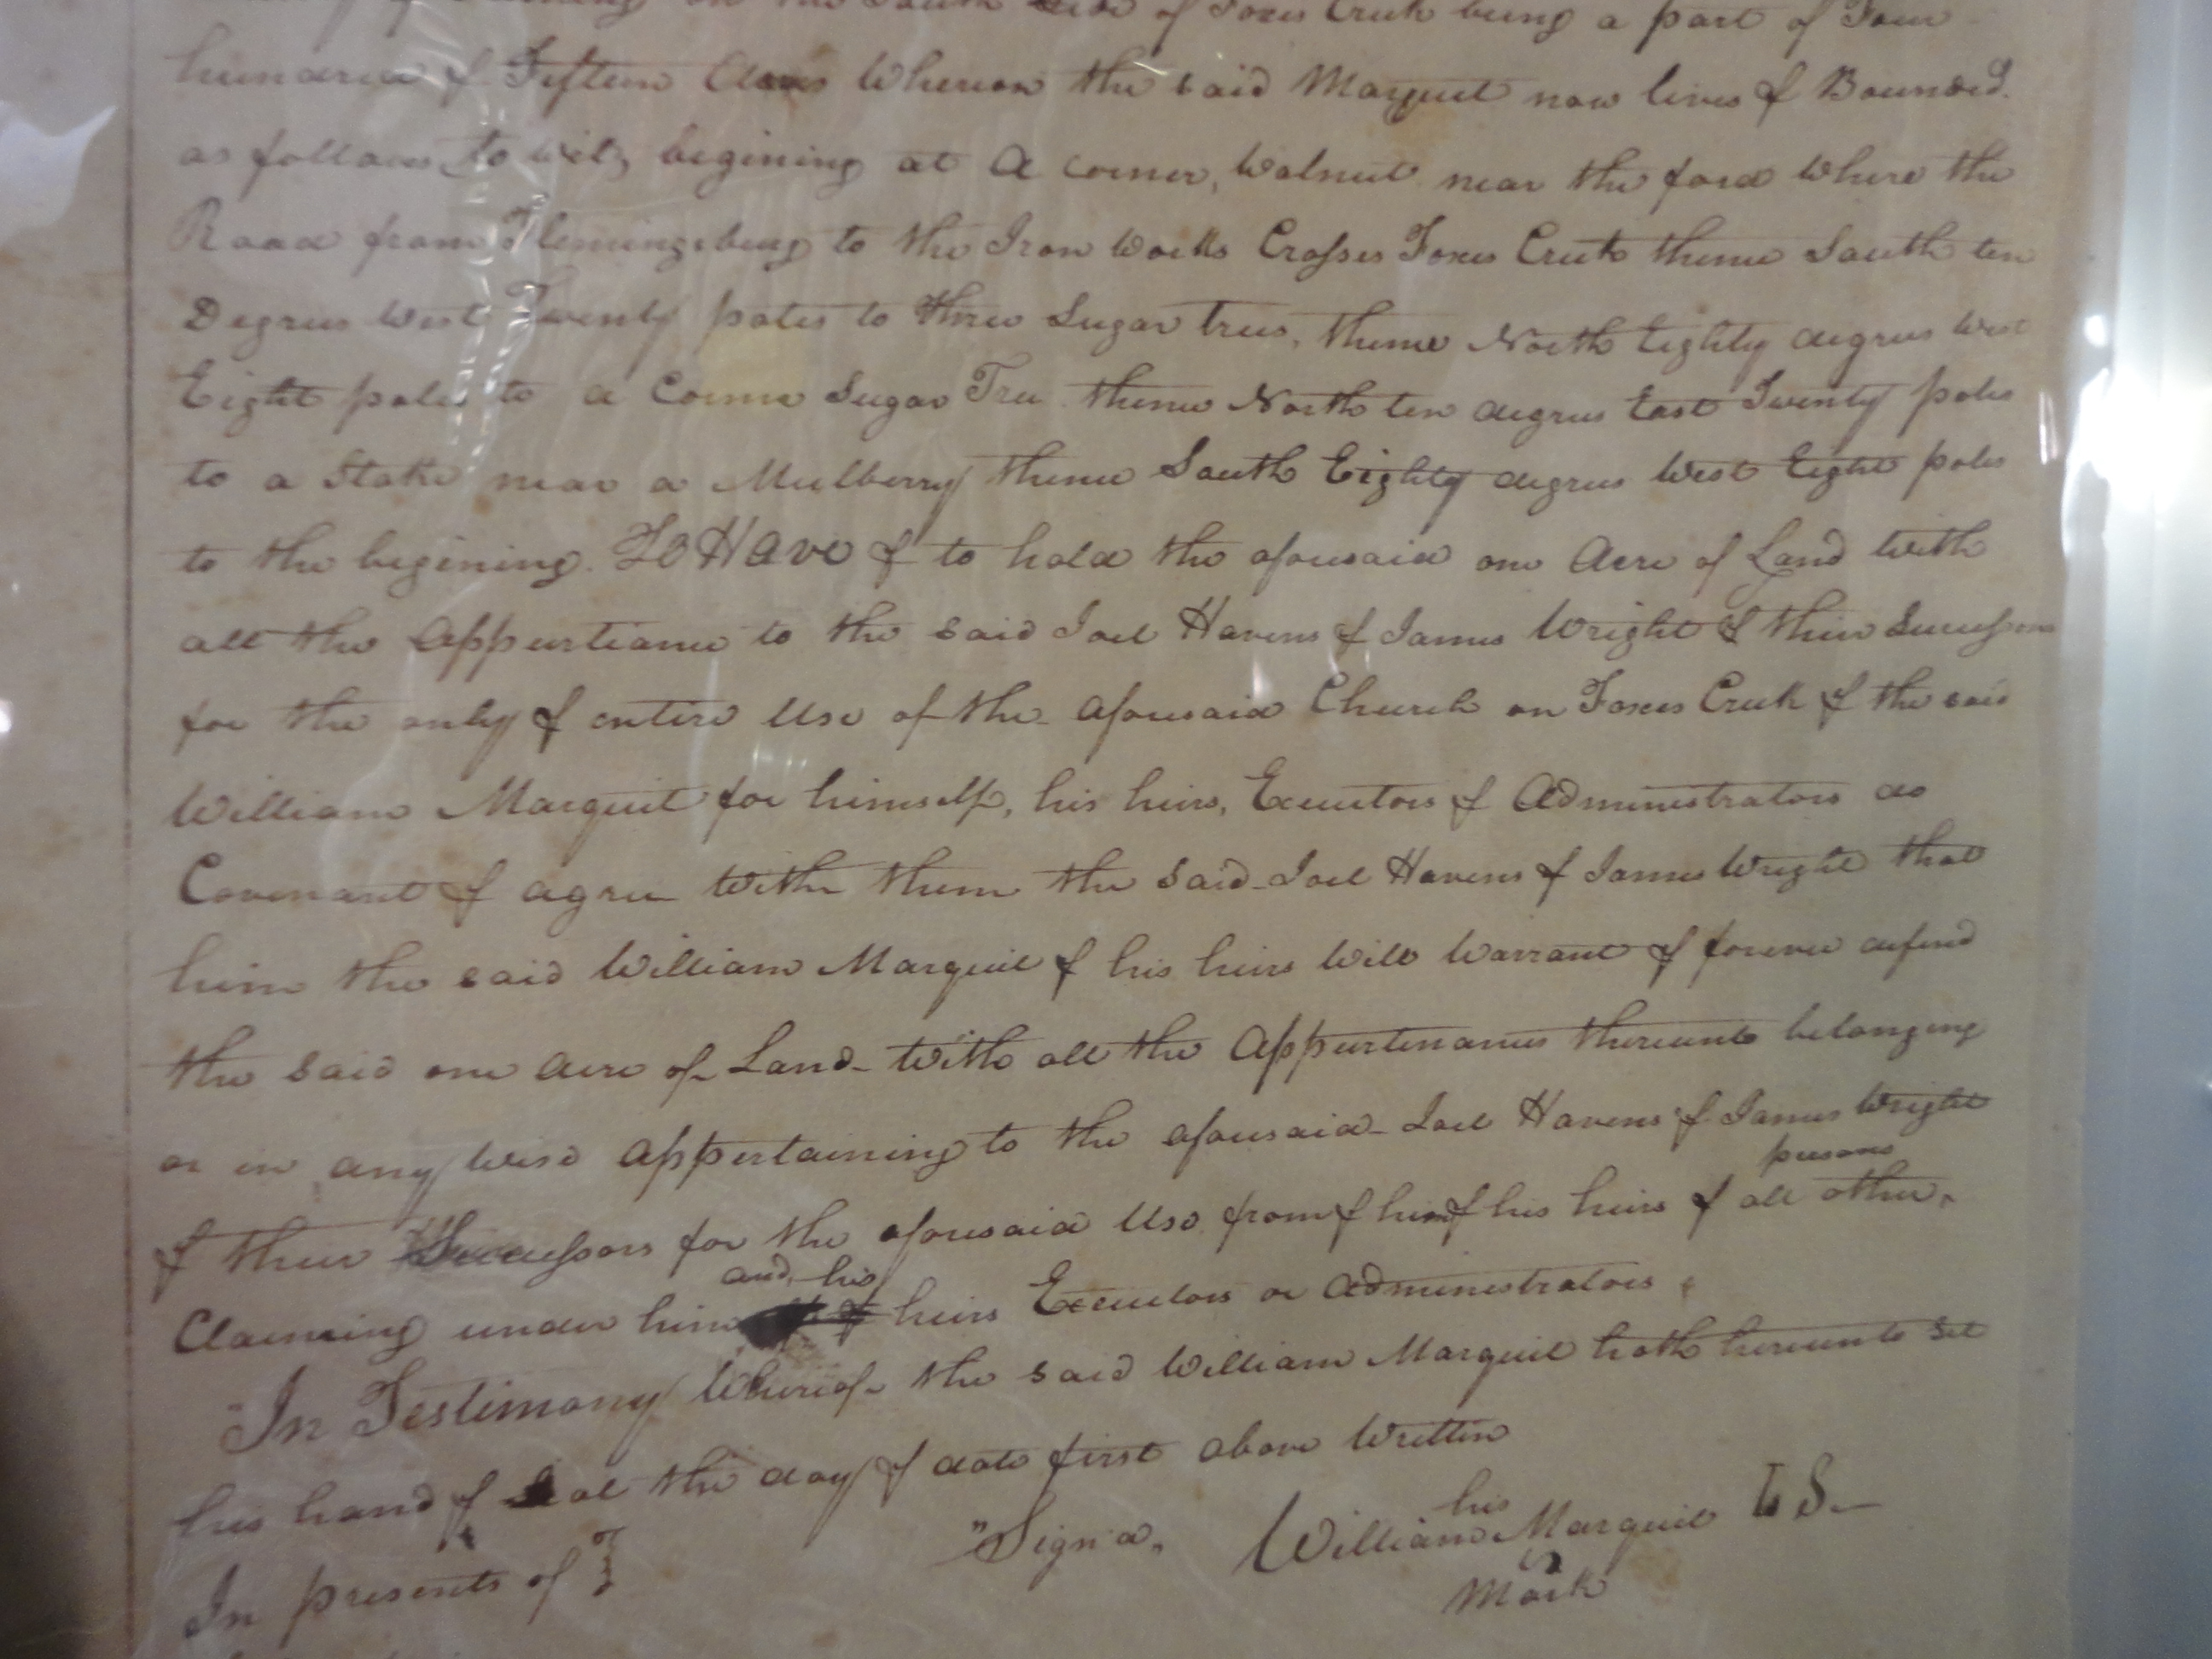 on the South side of Foxes Creek being a part of Four
hundred & Fifteen Acres Whereon the said Marquit now lives & Bounded
as follows to wit, begining at A corner, Walnut near the ford where the
Road from Flemingsburg to the Iron Works Crosses Foxes Creek thence South ten
Degrees West Twenty poles to three Sugar trees, thence North Eighty degrees West
Eight poles to a Corner Sugar Tree thence North ten degrees East Twenty poles
to a Stake near a Mulberry thence South Eighty degrees West Eight poles
to the begining. To Have & to hold the aforesaid one Acre of Land with
all the Appurtiance to the said Joel Havens & James Wright & their Successors
for the only & entire Use of the aforesaid Church on Foxes Creek & the said
William Marquit for himself, his heirs, Executors & Administrators do
Covenant & agree with them the Said Joel Havens & James Wright that
him the said William Marquit & his heirs Will Warrant & forever defend
the said one acre of Land with all the Appurtenances thereunto belonging
or in any wise appertaining to the aforesaid Joel Havens & James Wright
persons
& their Successors for the aforesaid Use from & him & his heirs & all other
and his
Claiming under him heirs Executors or administrators
In Testimony Whereof the said William Marquit hath hereunto Set
his hand & Seal the day & date first above Written
his
"Sign'd, William Marquit LS
Mark
In presents of